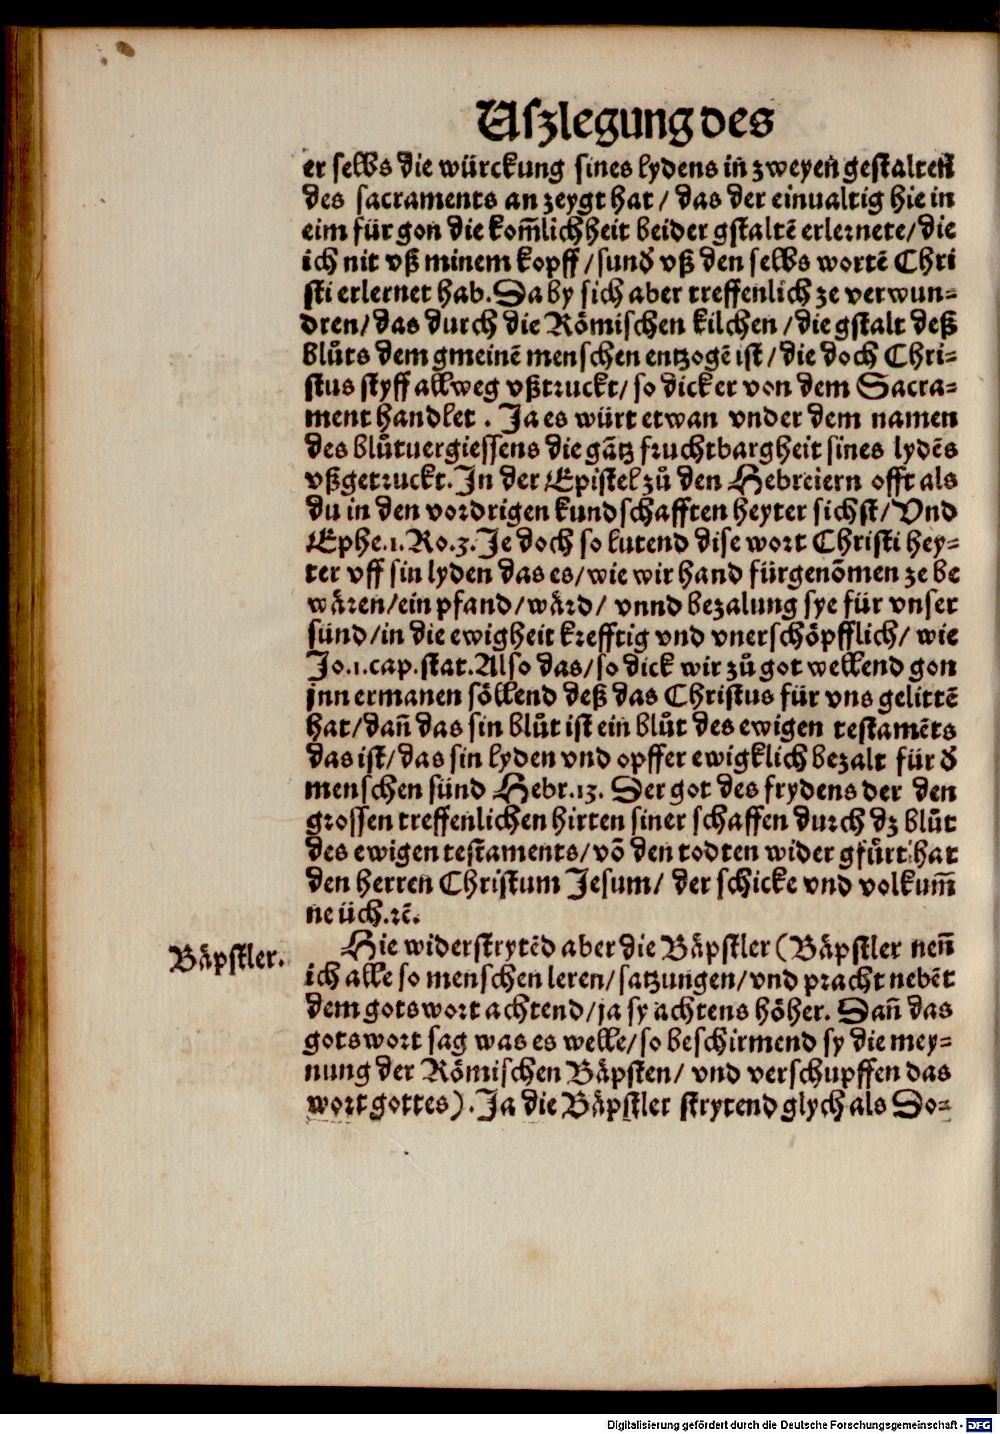 Uſzlegung des
er selbs die würckung sines lydens in̄ zweyen gestalten
des sacraments an zeygt hat / das der einualtig hie in
eim für gon die kom̄lichheit beider gstaltē erlernete / die
ich nit vß minem kopff / sunđ vß den selbs wortē Chri
sti erlernet hab. Da by sich aber treffenlich ze verwun-
dren / das durch die Römischen kilchen / die gstalt deß
blůts dem gmeinē menschen entzogē ist / die doch Chri-
stus styff allweg vßtruckt / so dick er von dem Sacra-
ment handlet . Ja es würt etwan vnder dem namen
des blůtuergiessens die gātz fruchtbargheit sines lydēs
vßgetruckt. In der Epistel zů den Hebreiern offt als
du in den vordrigen kundschafften heyter sichst / Vnd
Ephe.1. Ro.3. Je doch so lutend dise wort Christi hey-
ter vff sin lyden das es / wie wir hand fürgenōmen ze be
wären / ein pfand / wärd / vnnd bezalung sye für vnser
sünd / in die ewigheit krefftig vnd vnerschöpfflich / wie
Jo.1.cap.stat. Also das / so dick wir zů got wellend gon
jnn ermanen söllend deß das Christus für vns gelittē
hat / dan̄ das sin blůt ist ein blůt des ewigen testamēts
das ist / das sin lyden vnd opffer ewigklich bezalt für đ
menschen sünd Hebr.13. Der got des frydens der den
grossen treffenlichen hirten siner schaffen durch dz blůt
des ewigen testaments / vō den todten wider gfürt hat
den herren Christum Jesum / der schicke vnd volkum̄
ne üch.ꝛē.
Bäpstler.
Hie widerstrytēd aber die Bäpstler (Bäpstler nen̄
ich alle so menschen leren / satzungen / vnd pracht nebēt
dem gotswort achtend / ja sy achtens höher. Dan̄ das
gotswort sag was es welle / so beschirmend sy die mey-
nung der Römischen Bäpsten / vnd verschupffen das
wort gottes). Ja die Bäpstler strytend glych als Do-
Digitalisierung gefördert durch die Deutsche Forschungsgemeinschaft - DFG